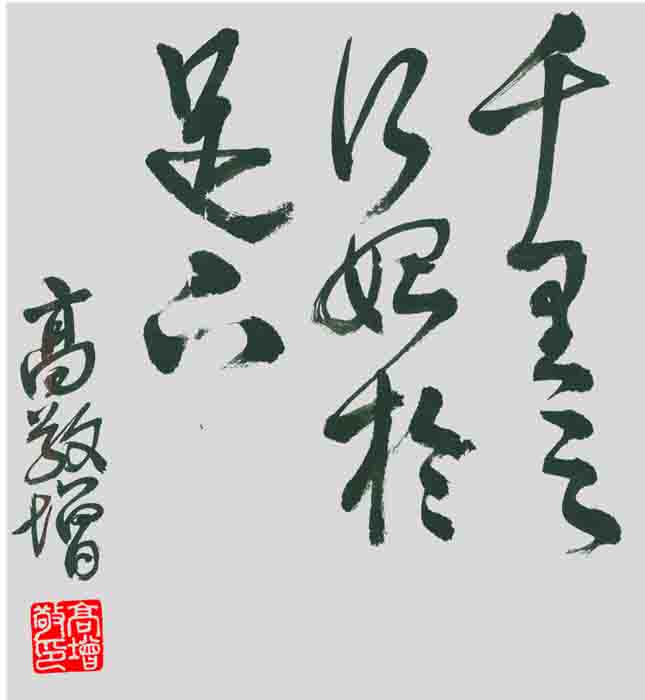 千里之
行始於
足下
高敬增
高增敬印